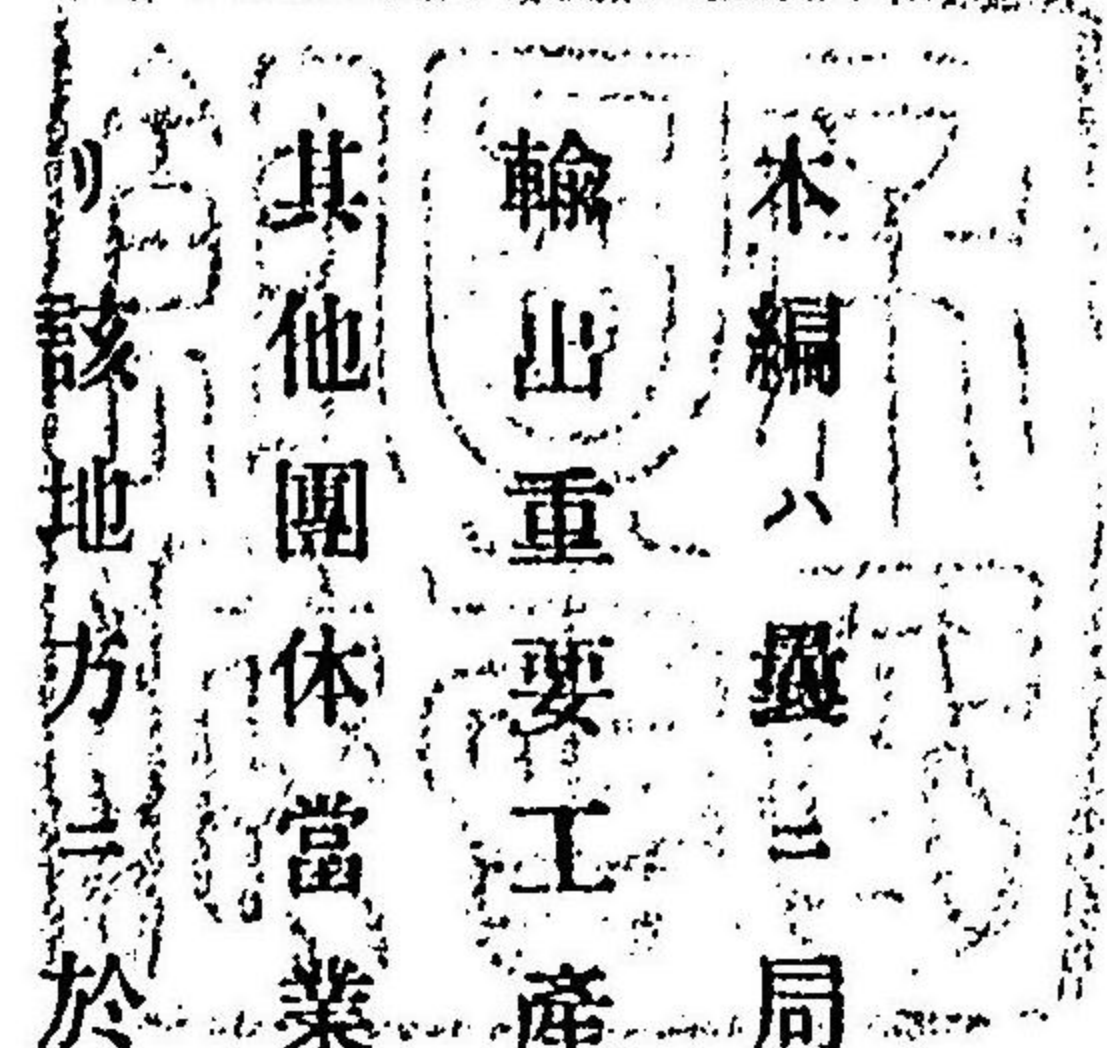 本編ハ曩ニ局
輸出重要工產
其他團体當業
リ該地方ニ於